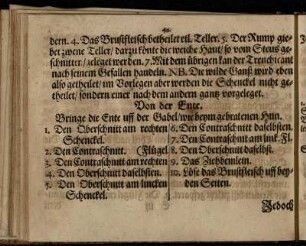 dern. 4. Das Brustfleisch betheilet etl. Teller. 5. Der Rump gie-
bet zwene Teller / darzu könte die weiche Haut / so vom Steus ge-
schnitten / geleget werden. 7. Mit dem übrigen kan der Trenchicant
nach seinem Gefallen handeln. NB. Die wilde Ganß wird eben
also getheilet / im Vorlegen aber werden die Schenckel nicht ge-
theilet / sondern einer nach dem andern gantz vorgeleget.
Von der Ente.
Bringe die Ente uff der Gabel / wie beym gebratenen Hun.
1. Den Oberschnitt am rechten Schenckel.
2. Den Contraschnitt. (Flügel
3. Den Contraschnitt am rechten
4. Den Oberschnitt daselbsten.
5. Den Oberschnitt am lincken Schenckel.
6. Den Contraschnitt daselbsten.
7. Den Contraschnitt am linck. Fl.
8. Den Oberschnitt daselbst.
9. Das Ziehbeinlein.
10. Löse das Brustfleisch uff beyden Seiten.
Jedoch